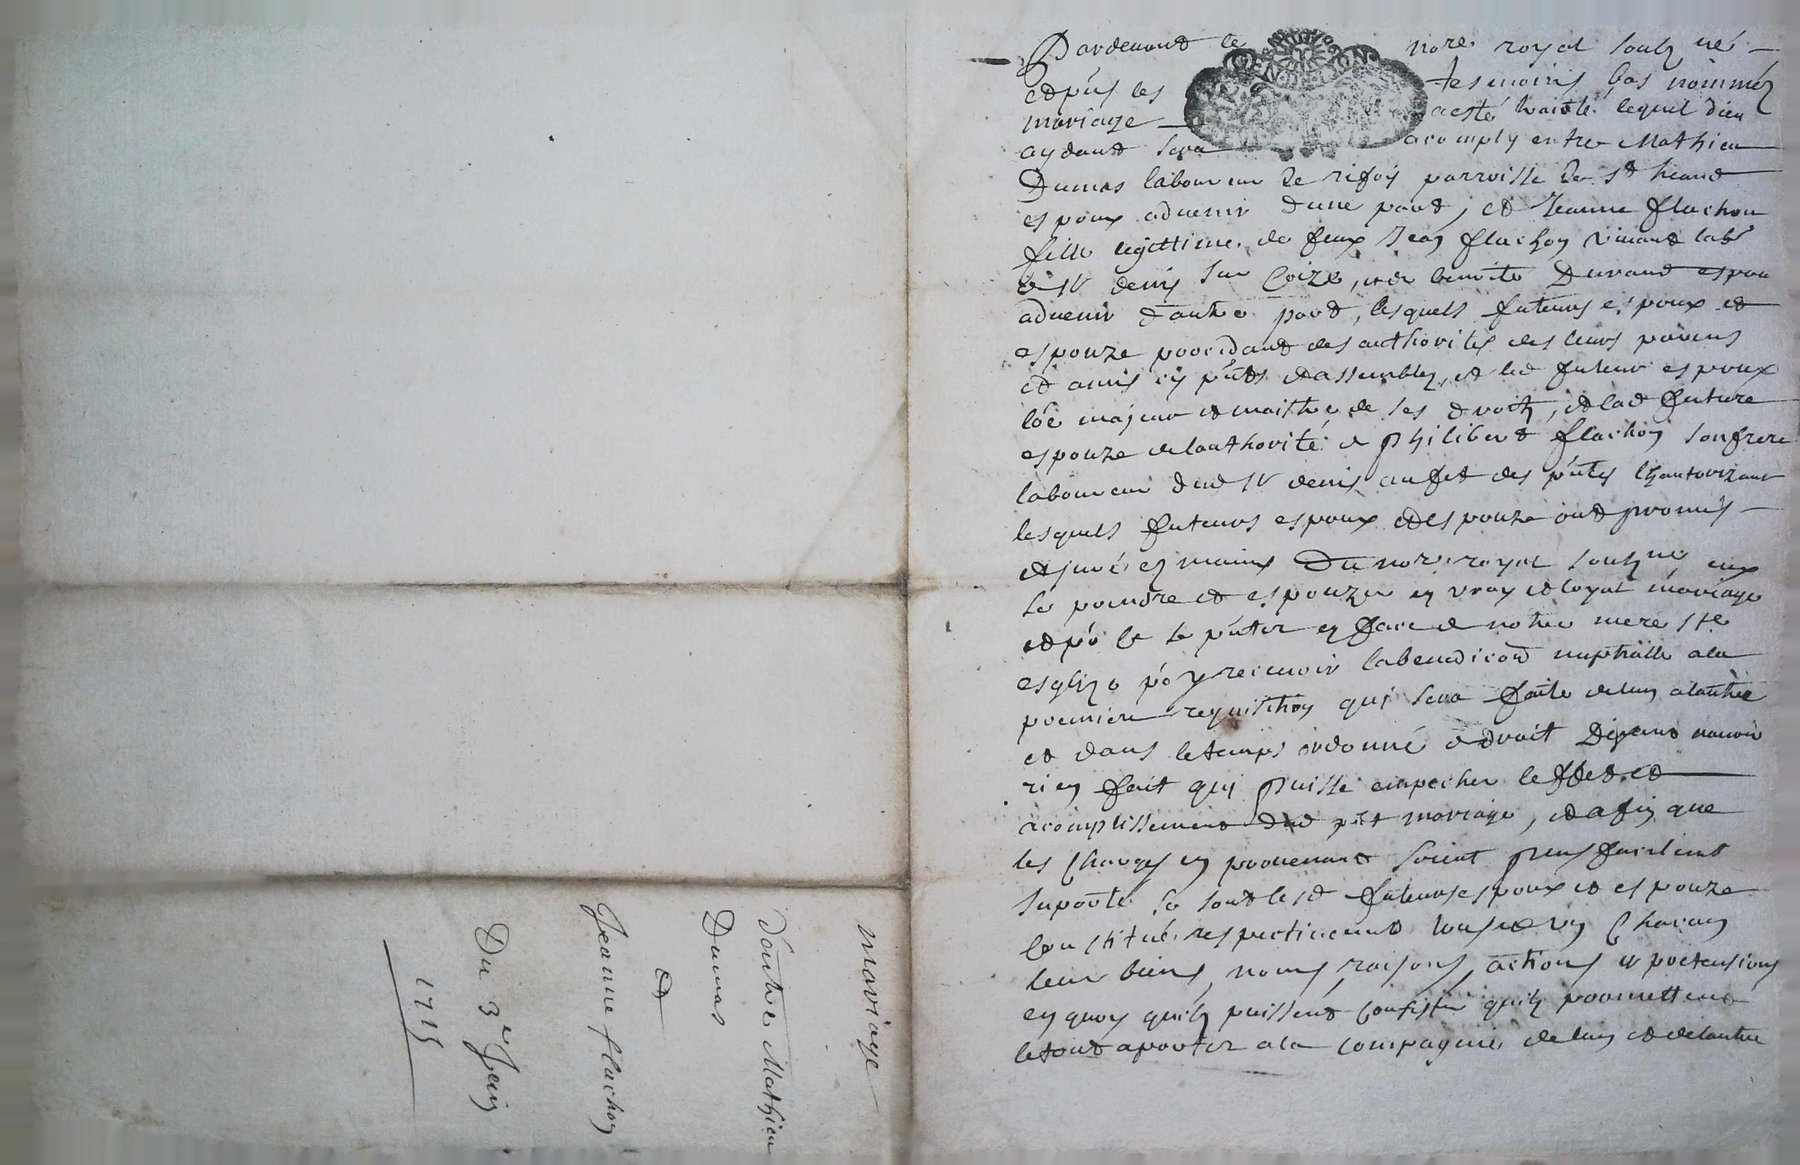 Pardevant le nore royal soubz né
et pñs les tesmoins bas nommez
mariage a esté traicté lequel dieu
aydant sera acomply entre Mathieu
Dumas laboureur de parroisse de St heand
espoux advenir dune part, et Jeanne flachon
fille legittime de feux Jean flachon vivant labr
de St denis sur Coize, et de benoite Durand espou
advenir dautre part, lesquels futeurs espoux et
espouze procedant des authorites des leurs parens
et amis icy pñts et assemblez, et led futeur espoux
majeur et maistre de ses droits, et lad future
espouze de lauthorité de philibert flachon son frere
laboureur dud St denis au fet des pñtes lhautorizant
lesquels futeurs espoux et espouze ont promis
et juré es mains Du nore royal soubzné eux
se prendre et espouzer en vray et loyal mariage
et po ce se pñter en face de notre mere ste
esglize po y recevoir la benediction nuptialle a la
premiere requisition qui sera faite de lun a lautre
et dans le temps ordonné de droit navoir
rien fait qui puisse empecher leffet et
acomplissement dud pñt mariage, et afin que
les charges en provenant soient plus facilemt
suporté se sont lesd futeurs espoux et espouze
constitué respectivement tous et un chacun
leur biens, noms, raisons, actions et pretensions
en quoy quils puissent consister quils promettent
le tout aporter a la compagnie de lun et de lautre
mariage
dentre Mathieu
Dumas
et
Jeanne flachon
Du 3e Juin
1715